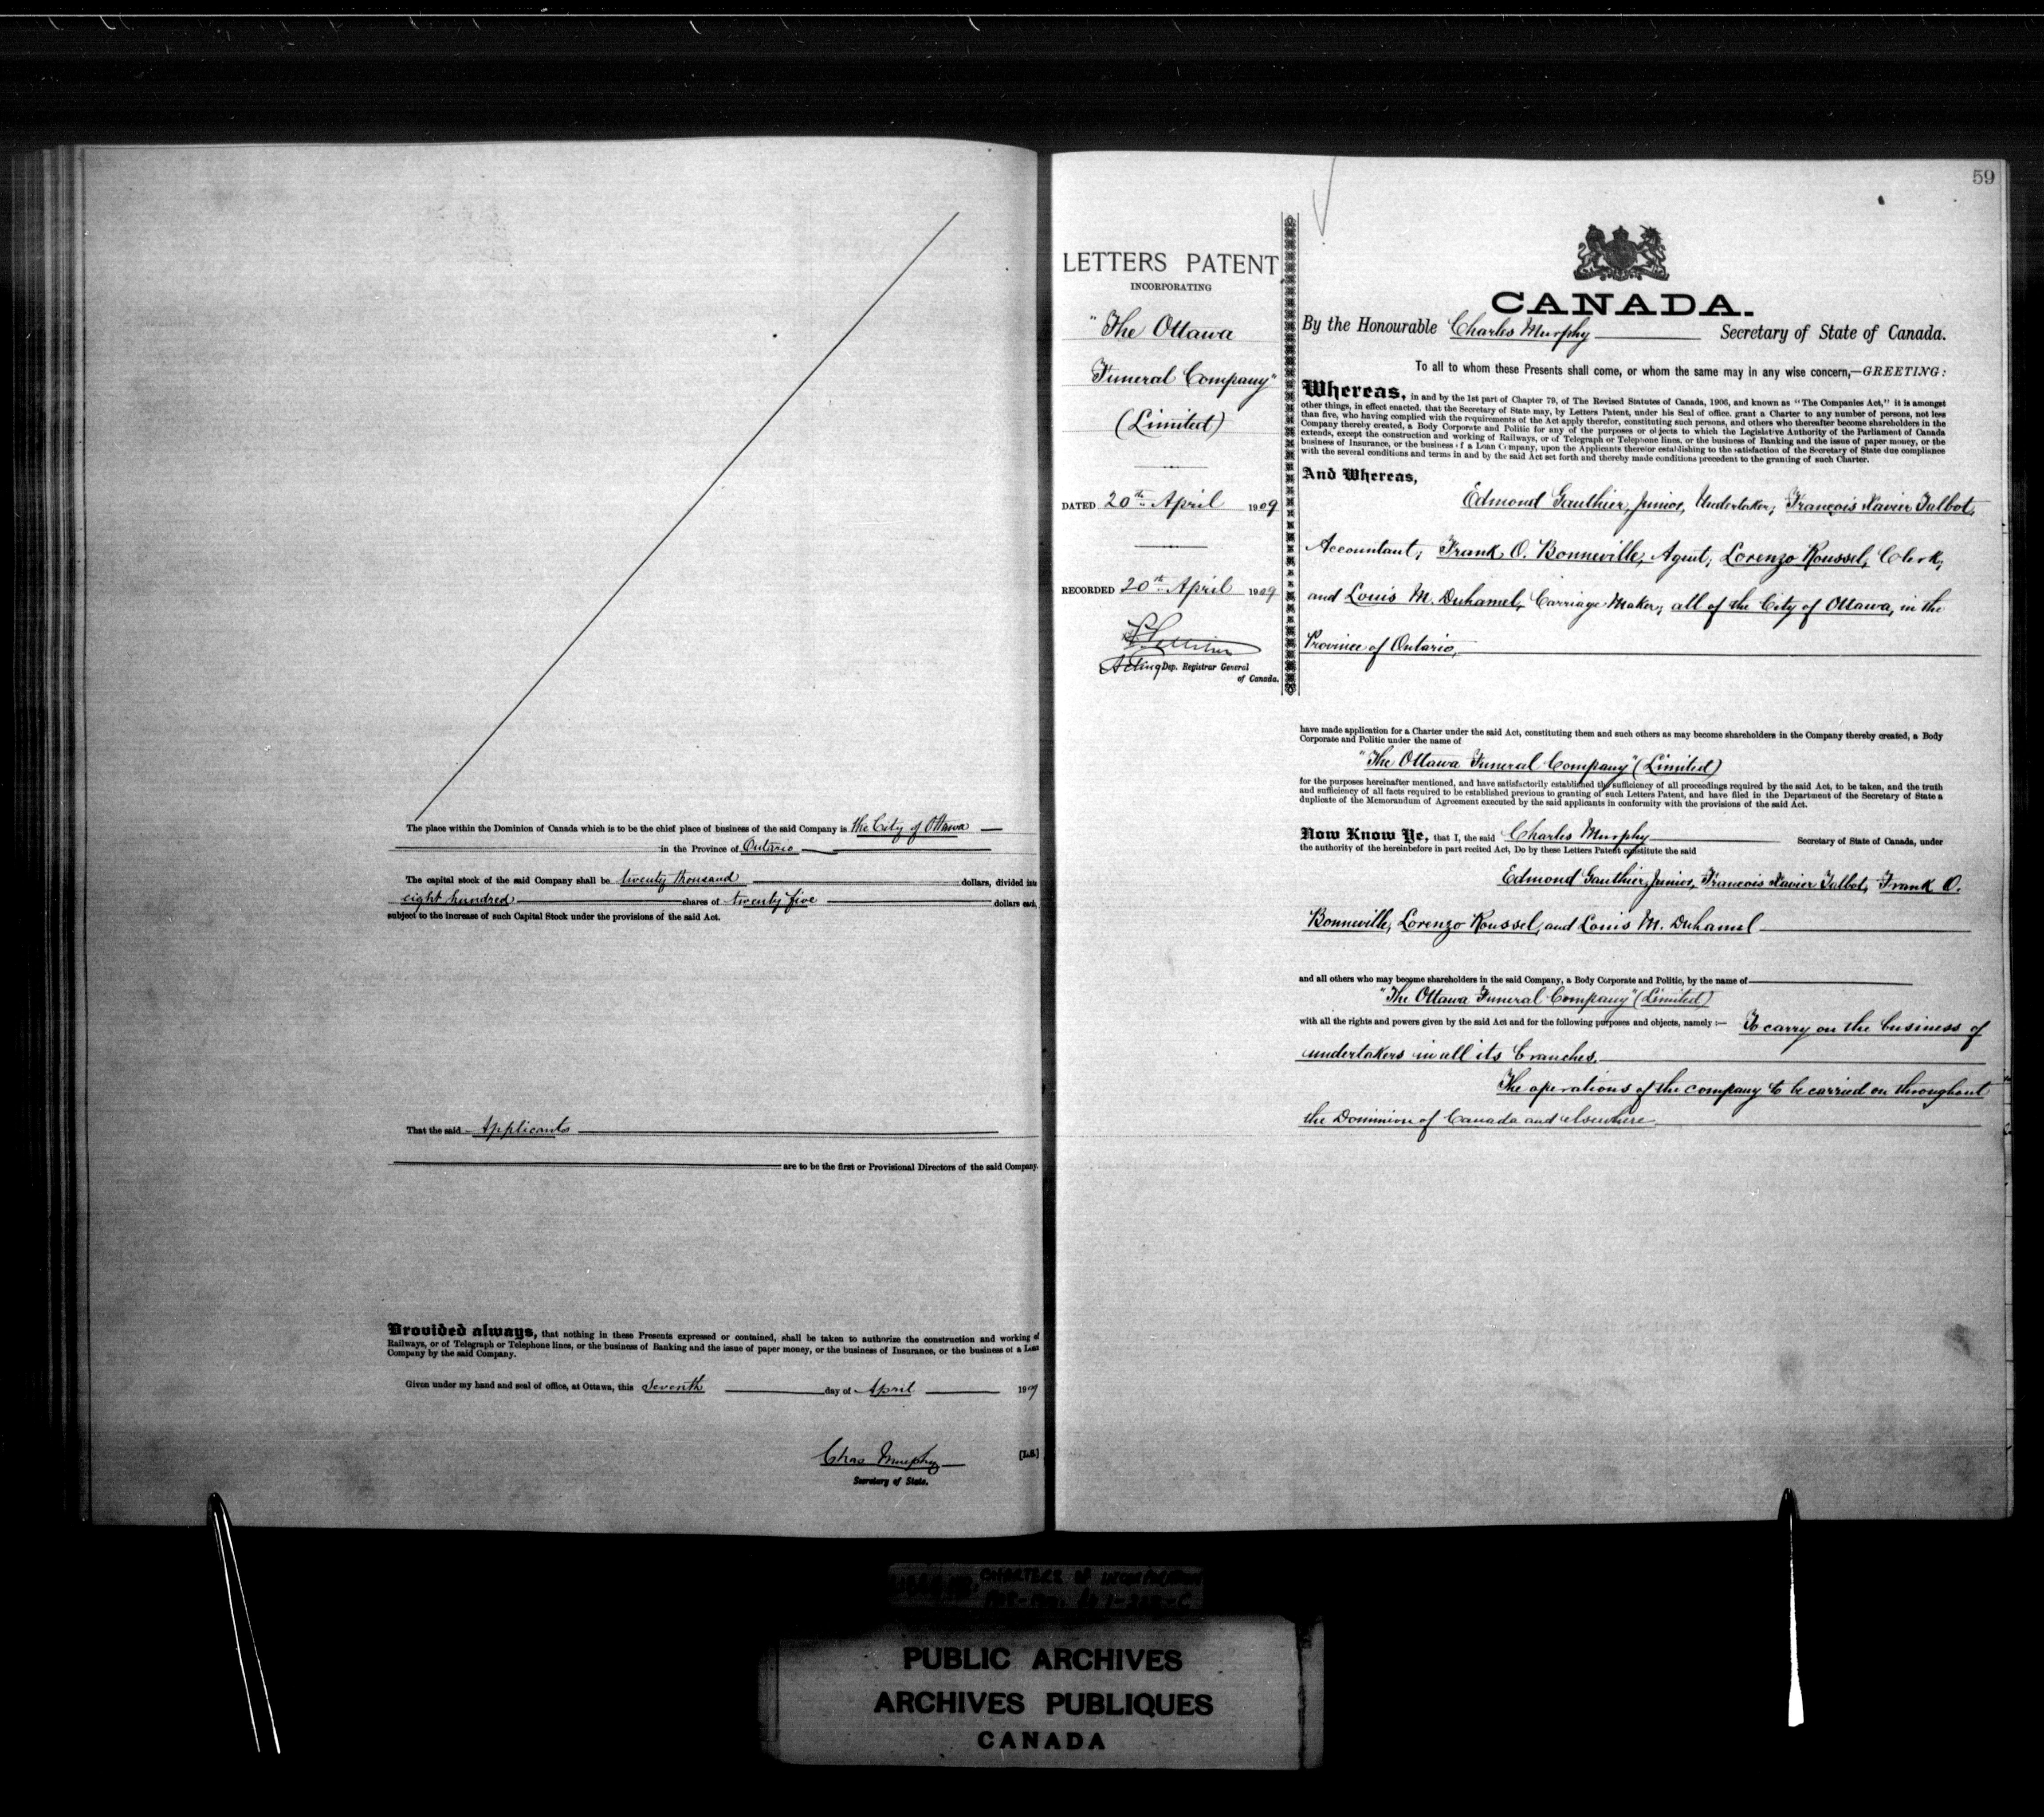 The place within the Dominion of Canada which is to be the chief place of business of the said Company is the City of Ottawa
in the Province of Ontario
The capital stock of the said Company shall be twenty thousand dollars, divided into
eight hundred shares of twenty five dollars each,
subject to the increase of such Capital Stock under the provisions of the said Act.
That the said Applicants
are to be the first or Provisional Directors of the said Company.
Provided always, that nothing in these Presents expressed or contained, shall be taken to authorize the construction and working of
Railways, or of Telegraph or Telephone lines, or the business of Banking and the issue of paper money, or the business of Insurance, or the business of a Loan
Company by the said Company.
Given under my hand and seal of office, at Ottawa, this Seventh day of April 1909
Chas Murphy [L.S.]
Secretary of State.
59
LETTERS PATENT
INCORPORATING
"The Ottawa
Funeral Company"
(Limited)
DATED 20th April 1909
RECORDED 20th April 1909
Acting Dep. Registrar General
of Canada.
CANADA.
By the Honourable Charles Murphy Secretary of State of Canada.
To all to whom these Presents shall come, or whom the same may in any wise concern,—GREETING:
Whereas, in and by the 1st part of Chapter 79, of The Revised Statutes of Canada, 1906, and known as "The Companies Act," it is amongst
other things, in effect enacted, that the Secretary of State may, by Letters Patent, under his Seal of office, grant a Charter to any number of persons, not less
than five, who having complied with the requirements of the Act apply therefor, constituting such persons, and others who thereafter become shareholders in the
Company thereby created, a Body Corporate and Politic for any of the purposes or objects to which the Legislative Authority of the Parliament of Canada
extends, except the construction and working of Railways, or of Telegraph or Telephone lines, or the business of Banking and the issue of paper money, or the
business of Insurance, or the business of a Loan Company, upon the Applicants therefor establishing to the satisfaction of the Secretary of State due compliance
with the several conditions and terms in and by the said Act set forth and thereby made conditions precedent to the granting of such Charter.
And Whereas,
Edmond Gauthier, Junior, Undertaker; François Xavier Talbot,
Accountant; Frank O. Bonneville, Agent; Lorenzo Roussel, Clerk;
and Louis M. Duhamel, Carriage Maker; all of the City of Ottawa, in the
Province of Ontario,
have made application for a Charter under the said Act, constituting them and such others as may become shareholders in the Company thereby created, a Body
Corporate and Politic under the name of
"The Ottawa Funeral Company" (Limited)
for the purposes hereinafter mentioned, and have satisfactorily established the sufficiency of all proceedings required by the said Act, to be taken, and the truth
and sufficiency of all facts required to be established previous to granting of such Letters Patent, and have filed in the Department of the Secretary of State a
duplicate of the Memorandum of Agreement executed by the said applicants in conformity with the provisions of the said Act.
Now Know Ye, that I, the said Charles Murphy Secretary of State of Canada, under
the authority of the hereinbefore in part recited Act, Do by these Letters Patent constitute the said
Edmond Gauthier, Junior, Francois Xavier Talbot, Frank O.
Bonneville, Lorenzo Roussel, and Louis M. Duhamel
and all others who may become shareholders in the said Company, a Body Corporate and Politic, by the name of
"The Ottawa Funeral Company" (Limited)
with all the rights and powers given by the said Act and for the following purposes and objects, namely :— To carry on the business of
undertakers in all its branches.
The operations of the company to be carried on throughout
the Dominion of Canada and elsewhere.
CHARTERS OF INCORPORATION
PUBLIC ARCHIVES
ARCHIVES PUBLIQUES
CANADA